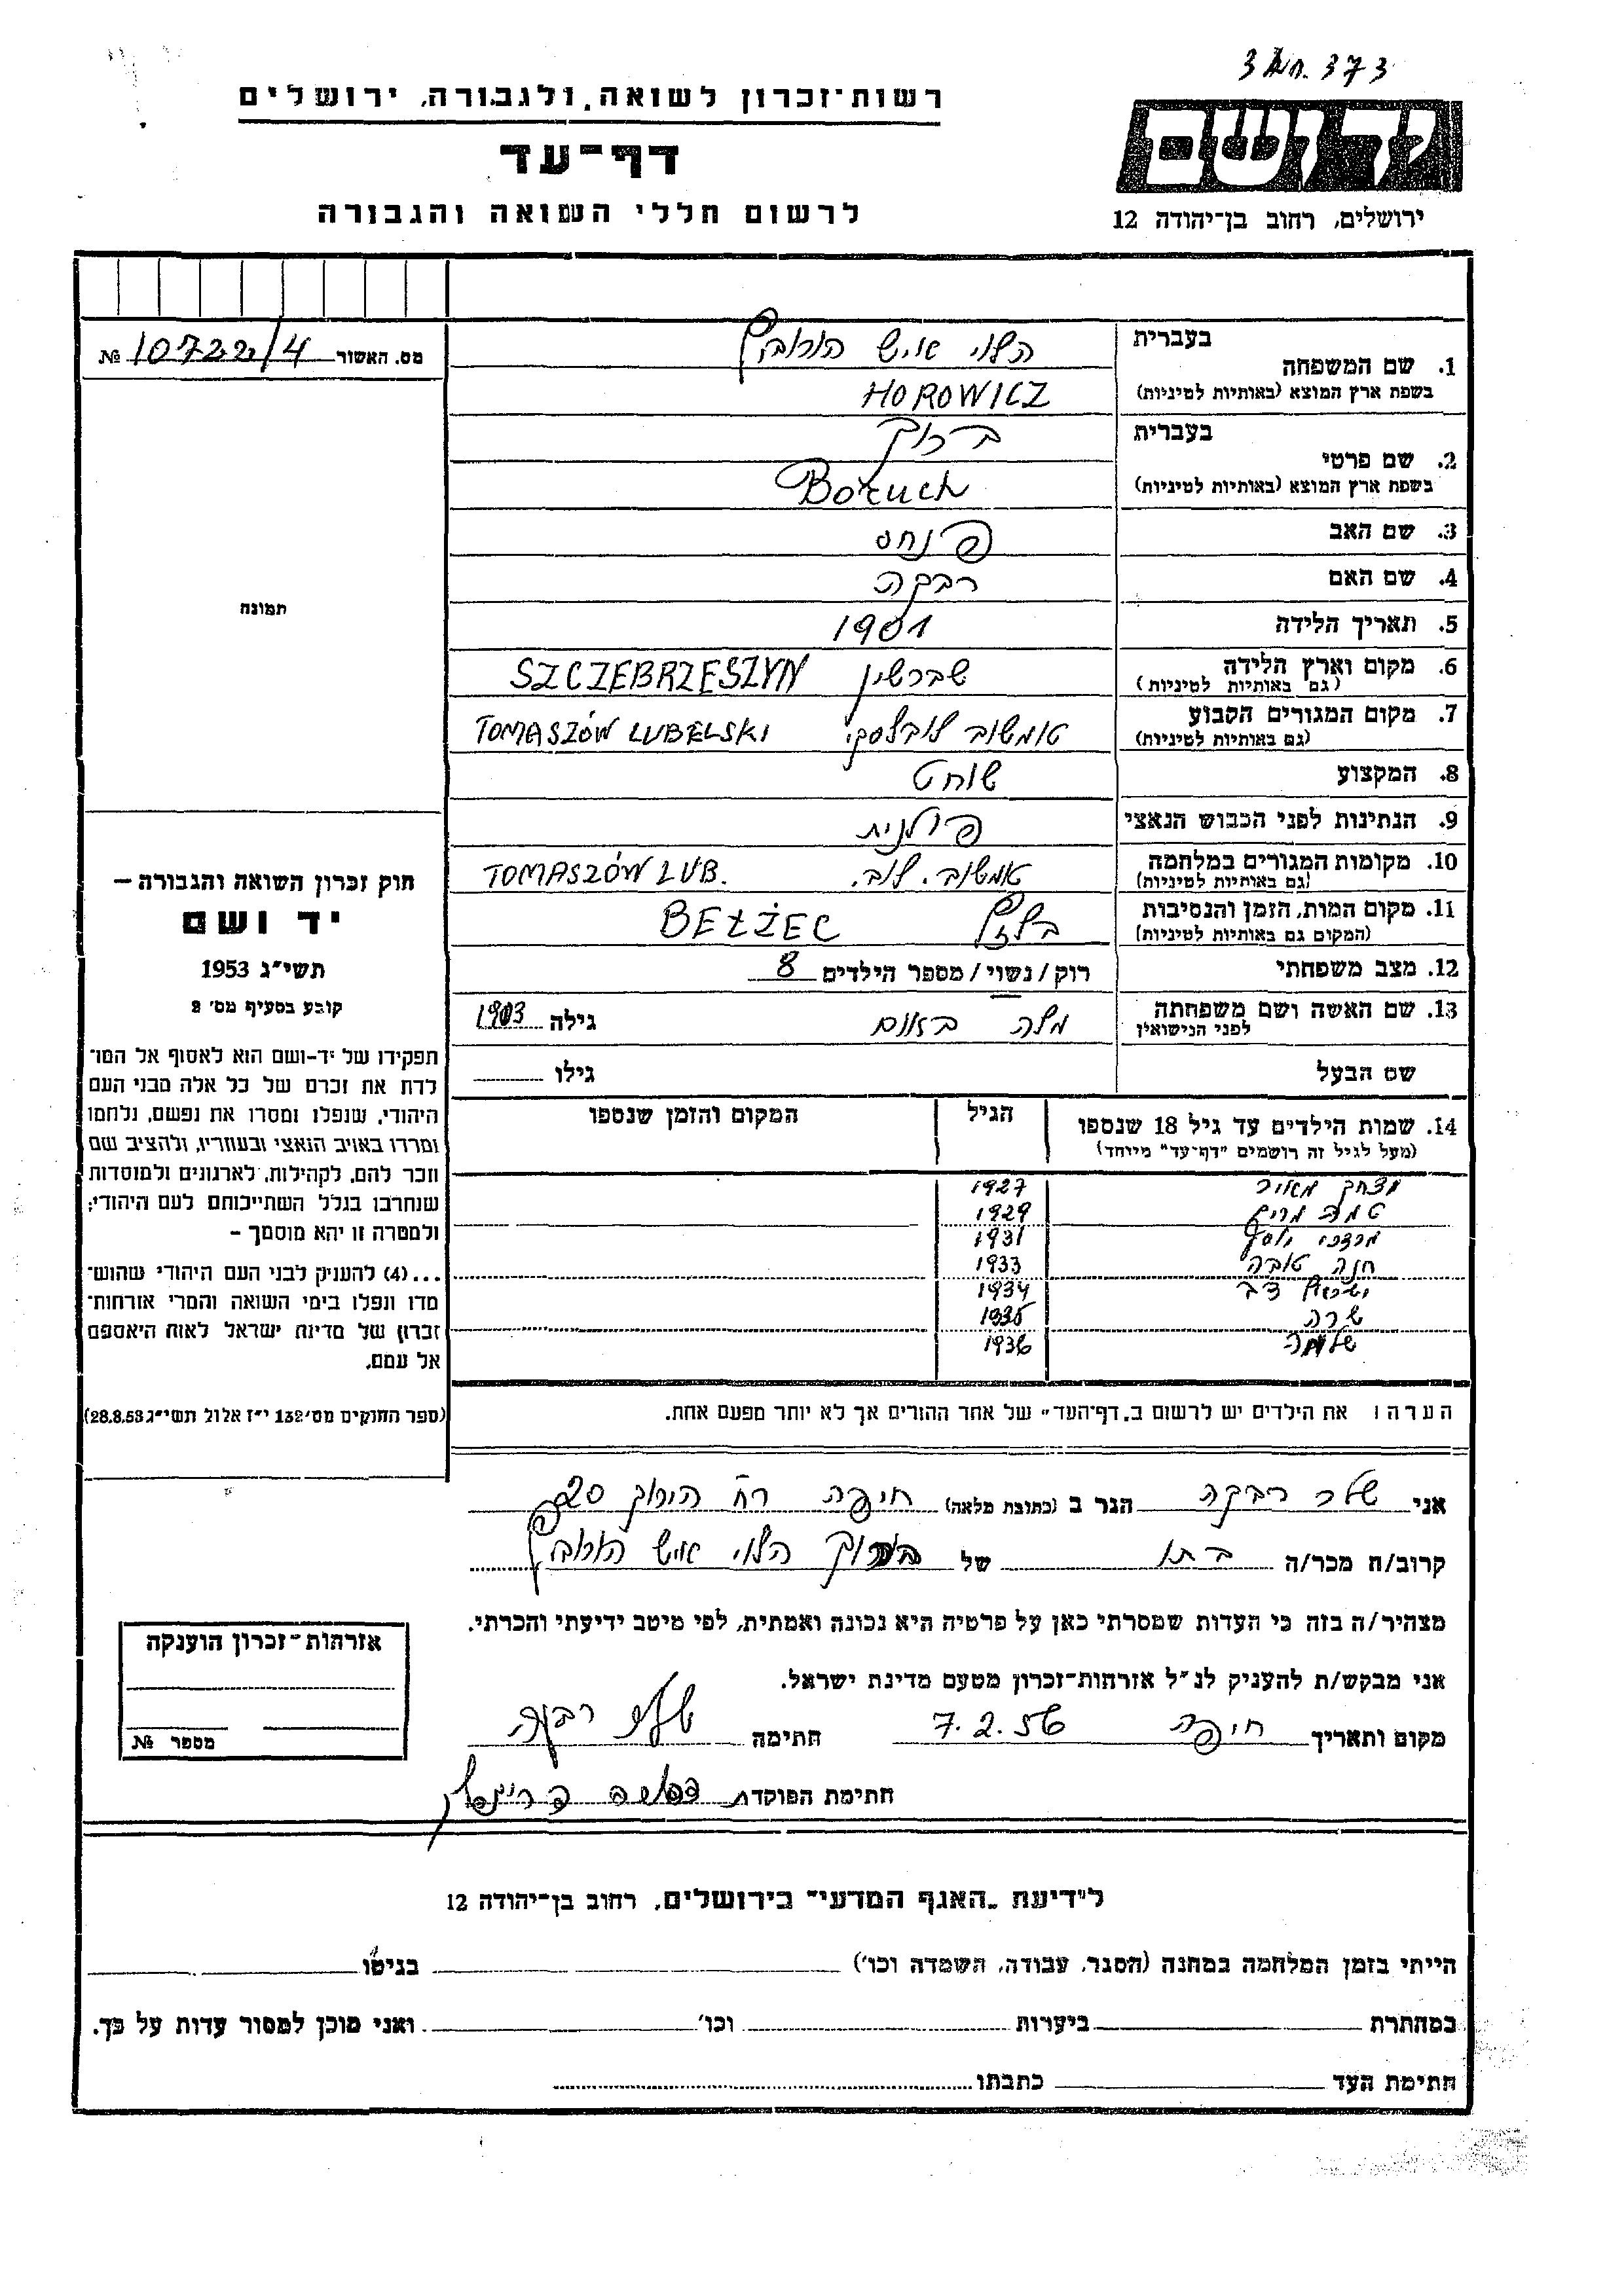 רשות־זכרון לשואה ולגבורה, ירושלים
דף־עד
לרשום חללי השואה והגבורה
373
יד ושם
ירושלים, רחוב בן־יהודה 12
מס. האשור 10722/4 №
תמונה
חוק זכרון השואה והגבורה —
יד ושם
תשי״ג 1953
קובע בסעיף מס׳ 2
תפקידו של יד-ושם הוא לאסוף אל המו־
לדת את זכרם של כל אלה מבני העם
היהודי, שנפלו ומסרו את נפשם, נלחמו
ומרדו באויב הנאצי ובעוזריו, ולהציב שם
וזכר להם, לקהילות, לארגונים ולמוסדות
שנחרבו בגלל השתייכותם לעם היהודי;
ולמטרה זו יהא מוסמך —
...(4) להעניק לבני העם היהודי שהוש־
מדו ונפלו בימי השואה והמרי אזרחות־
זכרון של מדינת ישראל לאות היאספם
אל עמם.
(ספר החוקים מס׳ 132 י״ז אלול תשי״ג 28.8.53)
1. שם המשפחה בעברית הלוי איש הורוביץ
בשפת ארץ המוצא (באותיות לטיניות) HOROWICZ
2. שם פרטי בעברית ברוך
בשפת ארץ המוצא (באותיות לטיניות) Boruch
3. שם האב פנחס
4. שם האם רבקה
5. תאריך הלידה 1901
6. מקום וארץ הלידה (גם באותיות לטיניות) שברשין SZCZEBRZESZYN
7. מקום המגורים הקבוע (גם באותיות לטיניות) טומשוב לובלסקי TOMASZÓW LUBELSKI
8. המקצוע שוחט
9. הנתינות לפני הכבוש הנאצי פולנית
10. מקומות המגורים במלחמה (גם באותיות לטיניות) טומשוב. לוב. TOMASZÓW LUB.
11. מקום המות, הזמן והנסיבות (המקום גם באותיות לטיניות) בלזץ BEŁŻEC
12. מצב משפחתי רוק/נשוי/מספר הילדים 8
13. שם האשה ושם משפחתה לפני הנישואין מלה באום גילה 1903
שם הבעל גילו
14. שמות הילדים עד גיל 18 שנספו הגיל המקום והזמן שנספו
(מעל לגיל זה רושמים ״דף-עד״ מיוחד)
יצחק מאיר 1927
מרים 1929
מרדכי יוסף 1931
חנה טובה 1933
ישראל דב 1934
שרה 1935
שלמה 1936
הערה: את הילדים יש לרשום ב„דף־העד״ של אחד ההורים אך לא יותר מפעם אחת.
אני שלר רבקה הגר ב (כתובת מלאה) חיפה רח 20
קרוב/ה מכר/ה בתו של ברוך הלוי איש הורוביץ
מצהיר/ה בזה כי העדות שמסרתי כאן על פרטיה היא נכונה ואמתית, לפי מיטב ידיעתי והכרתי.
אני מבקש/ת להעניק לנ״ל אזרחות־זכרון מטעם מדינת ישראל.
מקום ותאריך חיפה 7.2.56 חתימה רבקה
חתימת הפוקדת
אזרחות־זכרון הוענקה
מספר №
לידיעת „האגף המדעי״ בירושלים, רחוב בן־יהודה 12
הייתי בזמן המלחמה במחנה (הסגר, עבודה, השמדה וכו׳) בגיטו
במחתרת ביערות וכו׳ ואני מוכן למסור עדות על כך.
חתימת העד כתבתו